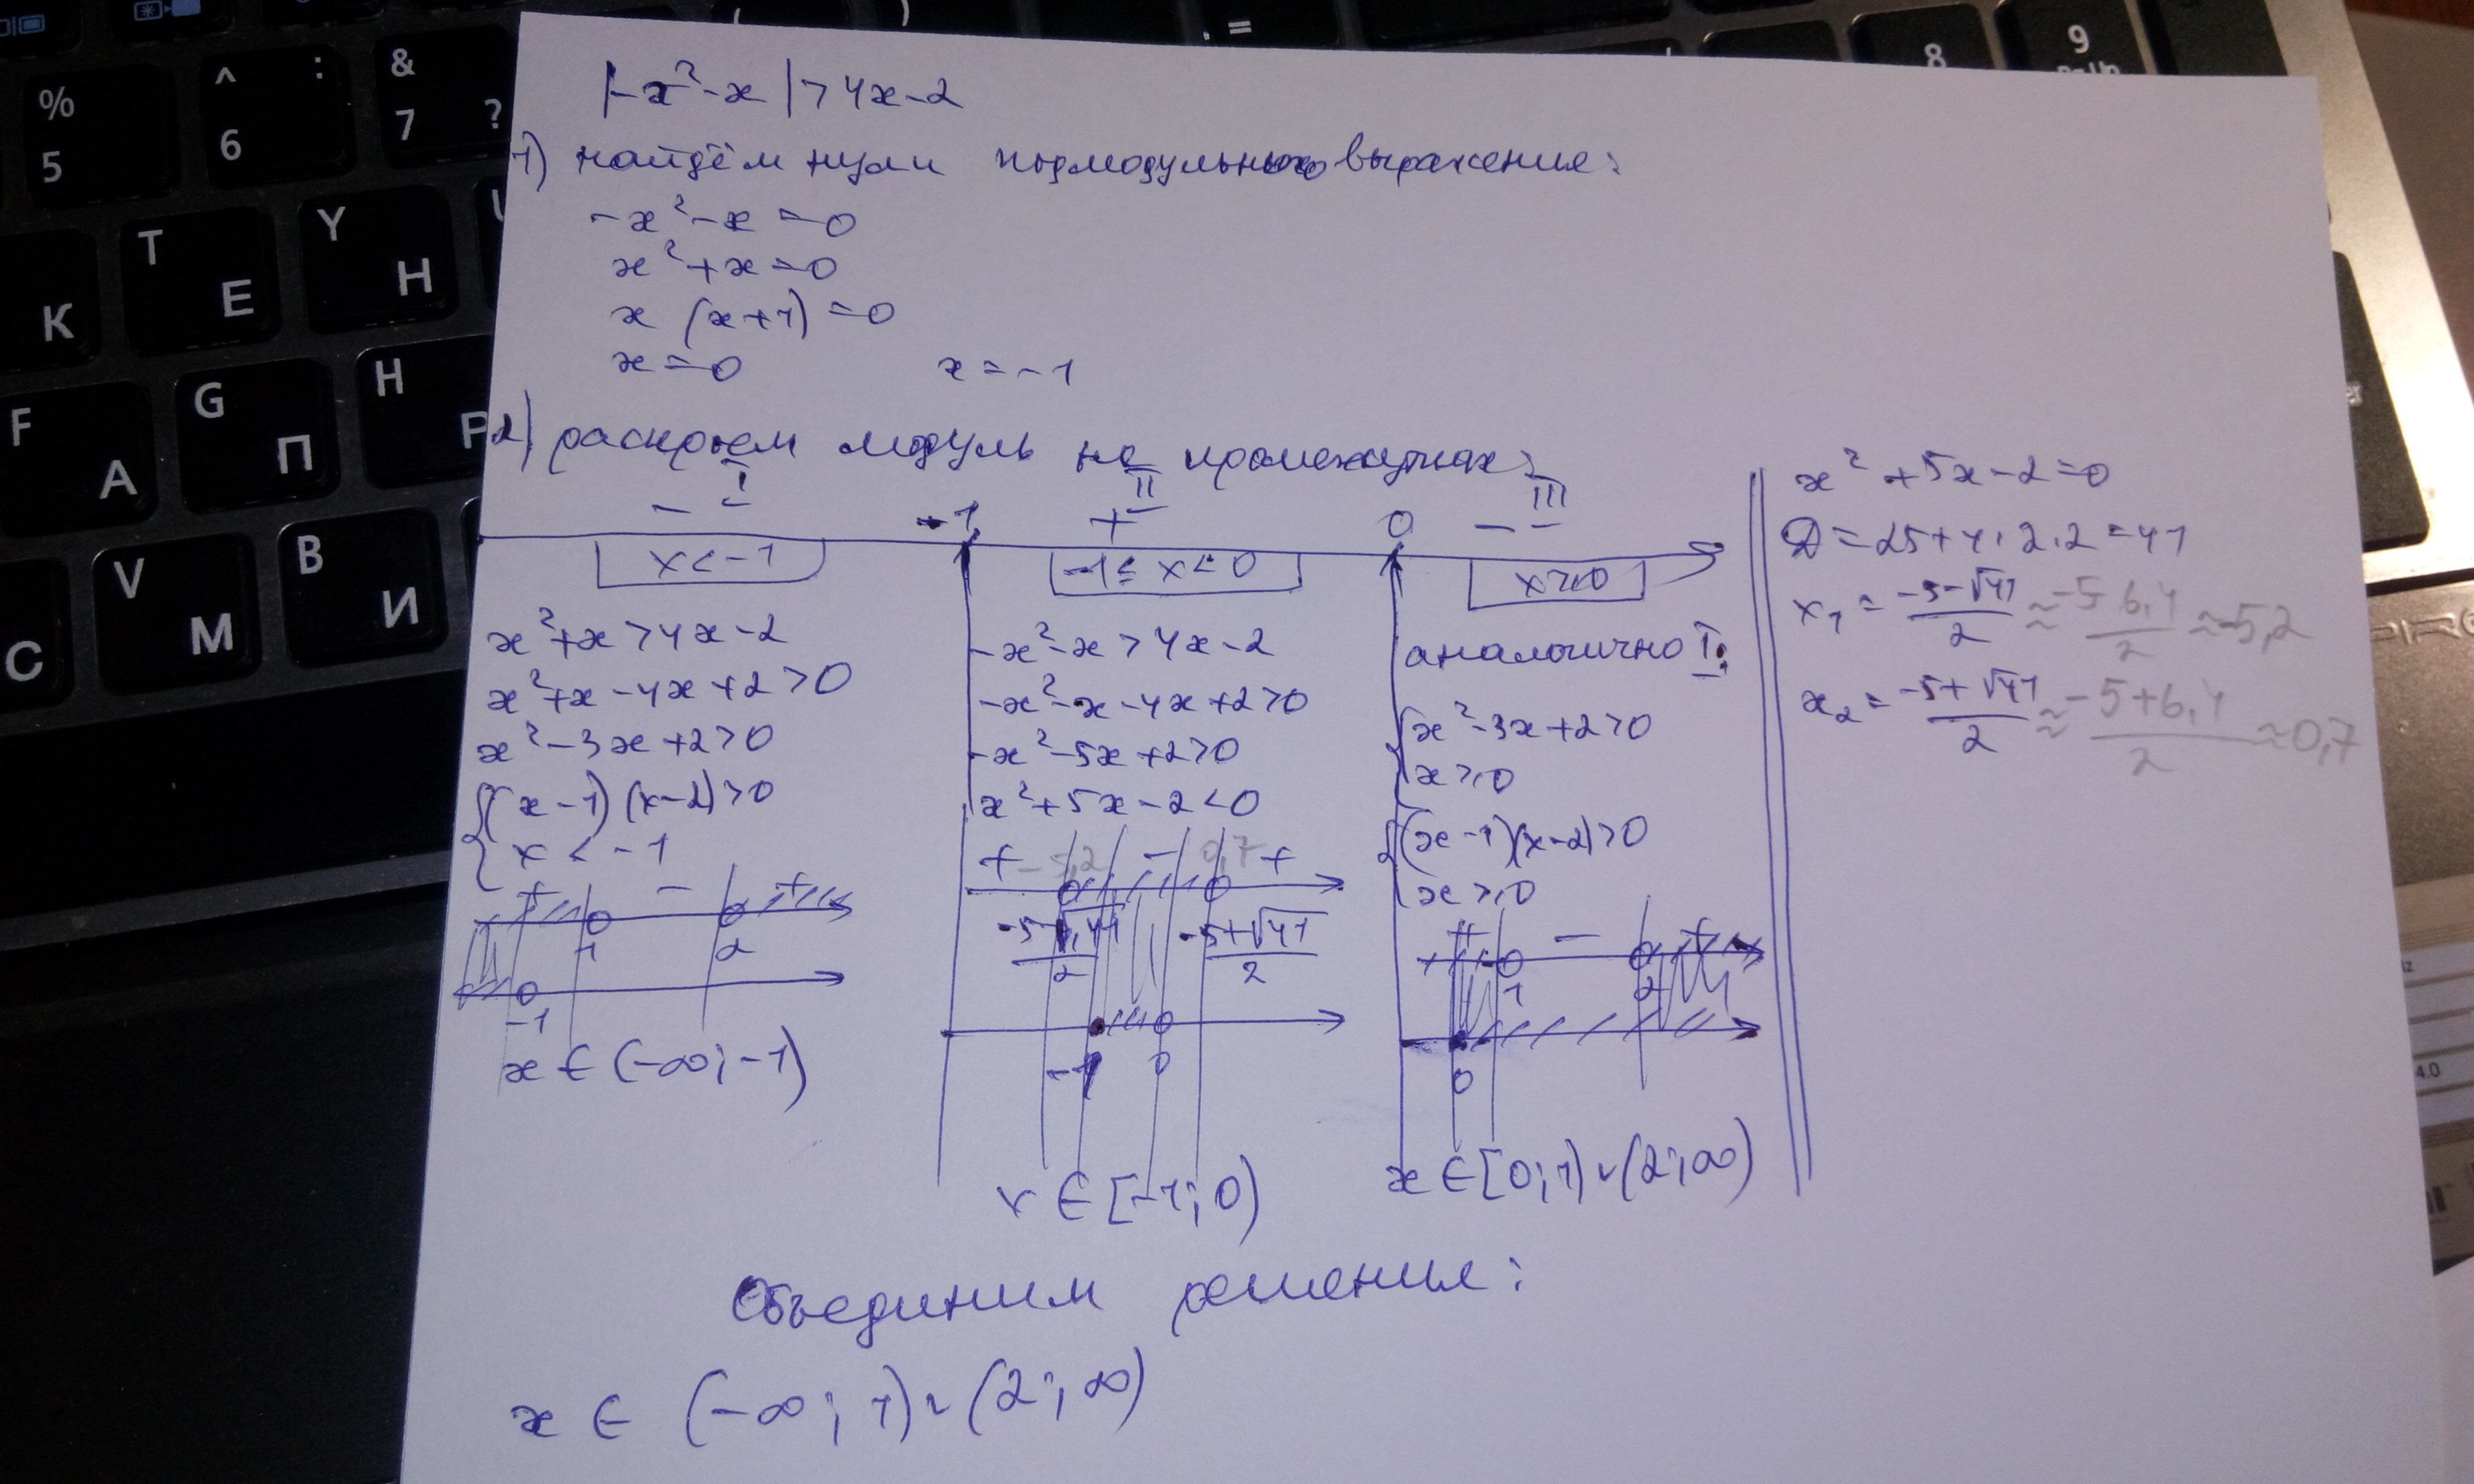 |-x²-x|>4x-2
1) найдём нули подмодульного выражения:
-x²-x=0
x²+x=0
x (x+1)=0
x=0 x=-1
2) раскроем модуль на промежутках:
I II III
- -1 + 0 -
x<-1 -1≤x<0 x≥0
x²+x>4x-2
x²+x-4x+2>0
x²-3x+2>0
(x-1)(x-2)>0
x<-1
+ - +
1 2
-1
x∈(-∞;-1)
-x²-x>4x-2
-x²-x-4x+2>0
-x²-5x+2>0
x²+5x-2<0
+ -5,2 - 0,7 +
(-5-√41)/2 (-5+√41)/2
-1 0
x∈[-1;0)
аналогично I:
x²-3x+2>0
x≥0
(x-1)(x-2)>0
x≥0
+ - +
1 2
0
x∈[0;1)∪(2;∞)
x²+5x-2=0
D=25+4·2·2=41
x₁=(-5-√41)/2≈(-5-6,4)/2≈-5,2
x₂=(-5+√41)/2≈(-5+6,4)/2≈0,7
Объединим решения:
x∈(-∞;1)∪(2;∞)
%
5
^
:
6
&
7
?
8
9
T
Е
Y
Н
К
F
А
G
П
H
Р
C
V
М
B
И